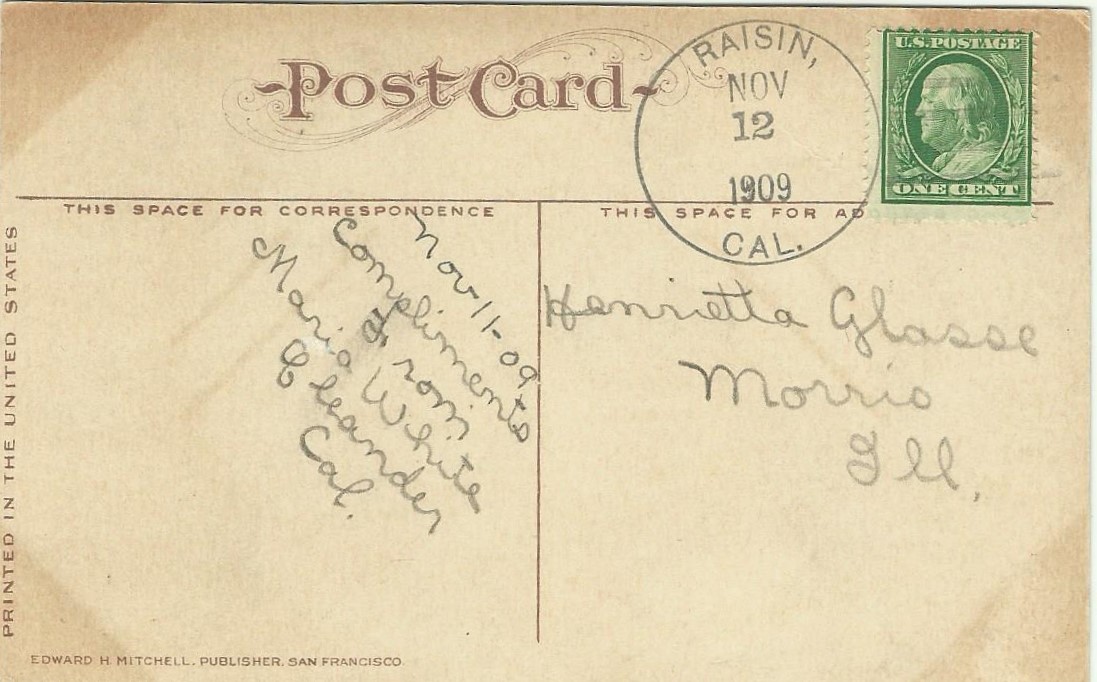 Post Card
RAISIN,
NOV
12
1909
CAL.
U.S. POSTAGE
ONE CENT
THIS SPACE FOR CORRESPONDENCE
THIS SPACE FOR AD
Nov-11-09
Compliments
from
Marie White
Oleander
Cal.
Henrietta Glasse
Morris
Ill,
PRINTED IN THE UNITED STATES
EDWARD H. MITCHELL, PUBLISHER, SAN FRANCISCO.